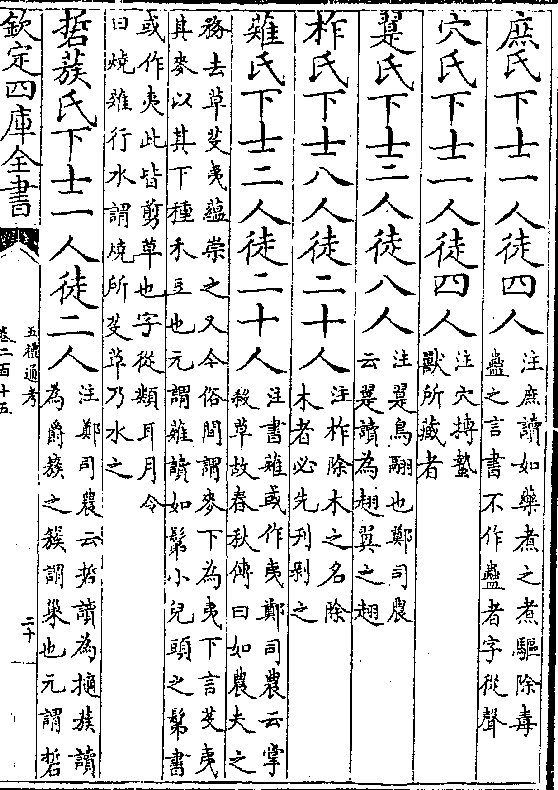 庶氏下士一人徒四人注庶讀如藥煮之煮驅除毒
蠱之言書不作蠱者字從聲
穴氏下士一人徒四人注穴搏蟄
獸所藏者
翨氏下士二人徒八人注翨鳥翮也鄭司農
云翨讀為翅翼之翅
柞氏下士八人徒二十人注柞除木之名除
木者必先刋剝之
薙氏下士二人徒二十人注書薙或作夷鄭司農云掌
殺草故春秋傳曰如農夫之
務去草芟夷蘊崇之又今俗間謂麥下為夷下言芟夷
其麥以其下種禾豆也元謂薙讀如鬀小兒頭之鬀書
或作夷此皆剪草也字從類耳月令
曰燒薙行水謂燒所芟草乃水之
硩蔟氏下士一人徒二人注鄭司農云硩讀為擿蔟讀
為爵蔟之蔟謂巢也元謂硩
欽定四庫全書
五禮通考
卷二百十五
二十